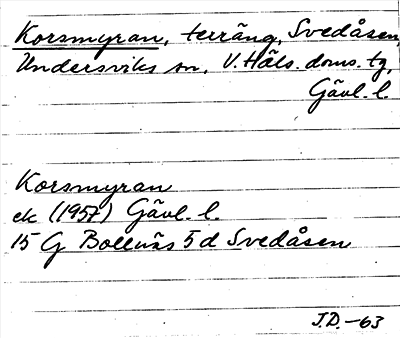 Korsmyran, terräng, Svedåsen,
Undersviks sn, V. Häls. doms. tg,
Gävl. l.
Korsmyran
ek (1957) Gävl. l.
15 G Bollnäs 5 d Svedåsen
J.D. -63